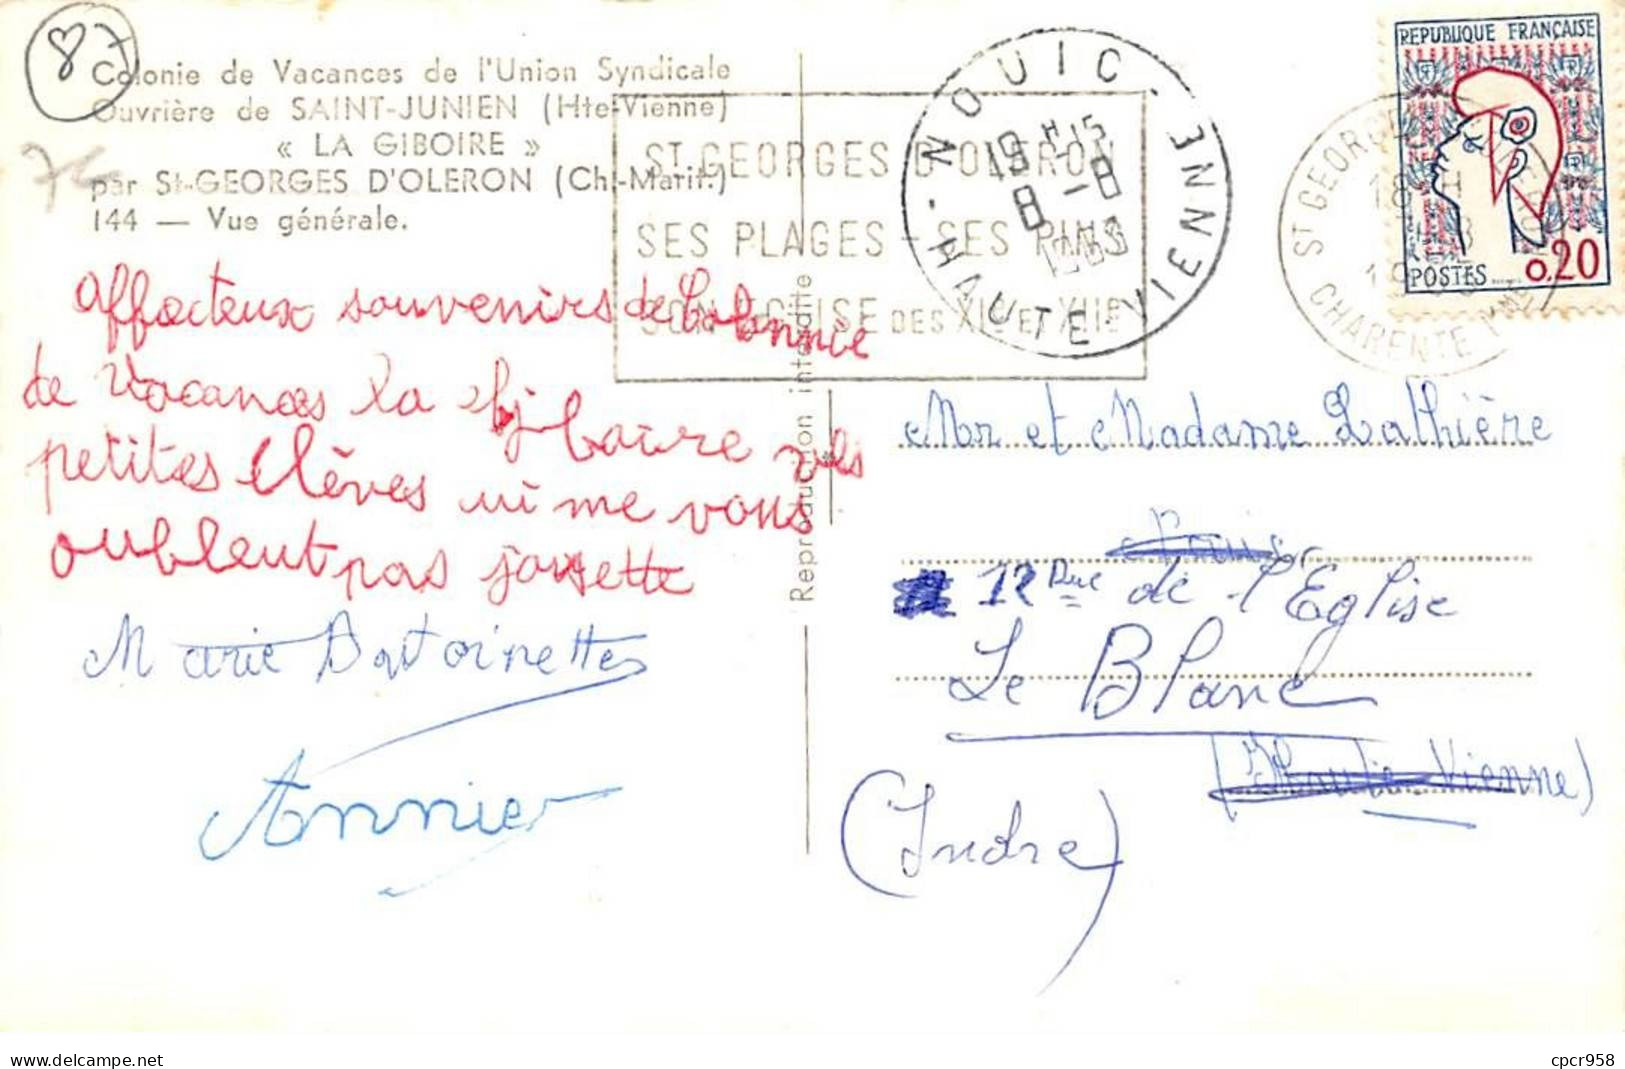 87
Colonie de Vacances de l'Union Syndicale
Ouvrière de SAINT-JUNIEN (Hte-Vienne)
« LA GIBOIRE »
par St-GEORGES D'OLERON (Ch.-Marit.)
144 — Vue générale.
Affecteux souvenirs de Colonnie
de Vacances La Giboire vos
petites élèves ni me vous
oublent pas josette
Marie Antoinette
Annie
Reproduction interdite
ST GEORGES D'OLERON
SES PLAGES - SES PINS
SON EGLISE DES XIE ET XIIE
NOUIC - HAUTE-VIENNE
19 H 15
8 - 8
ST GEORGES D'OLERON
18 H
CHARENTE MME
REPUBLIQUE FRANÇAISE
POSTES 0,20
Mr et Madame Lathière
12 Rue de l'Eglise
Le Blanc
(Haute Vienne)
(Indre)
cpcr958